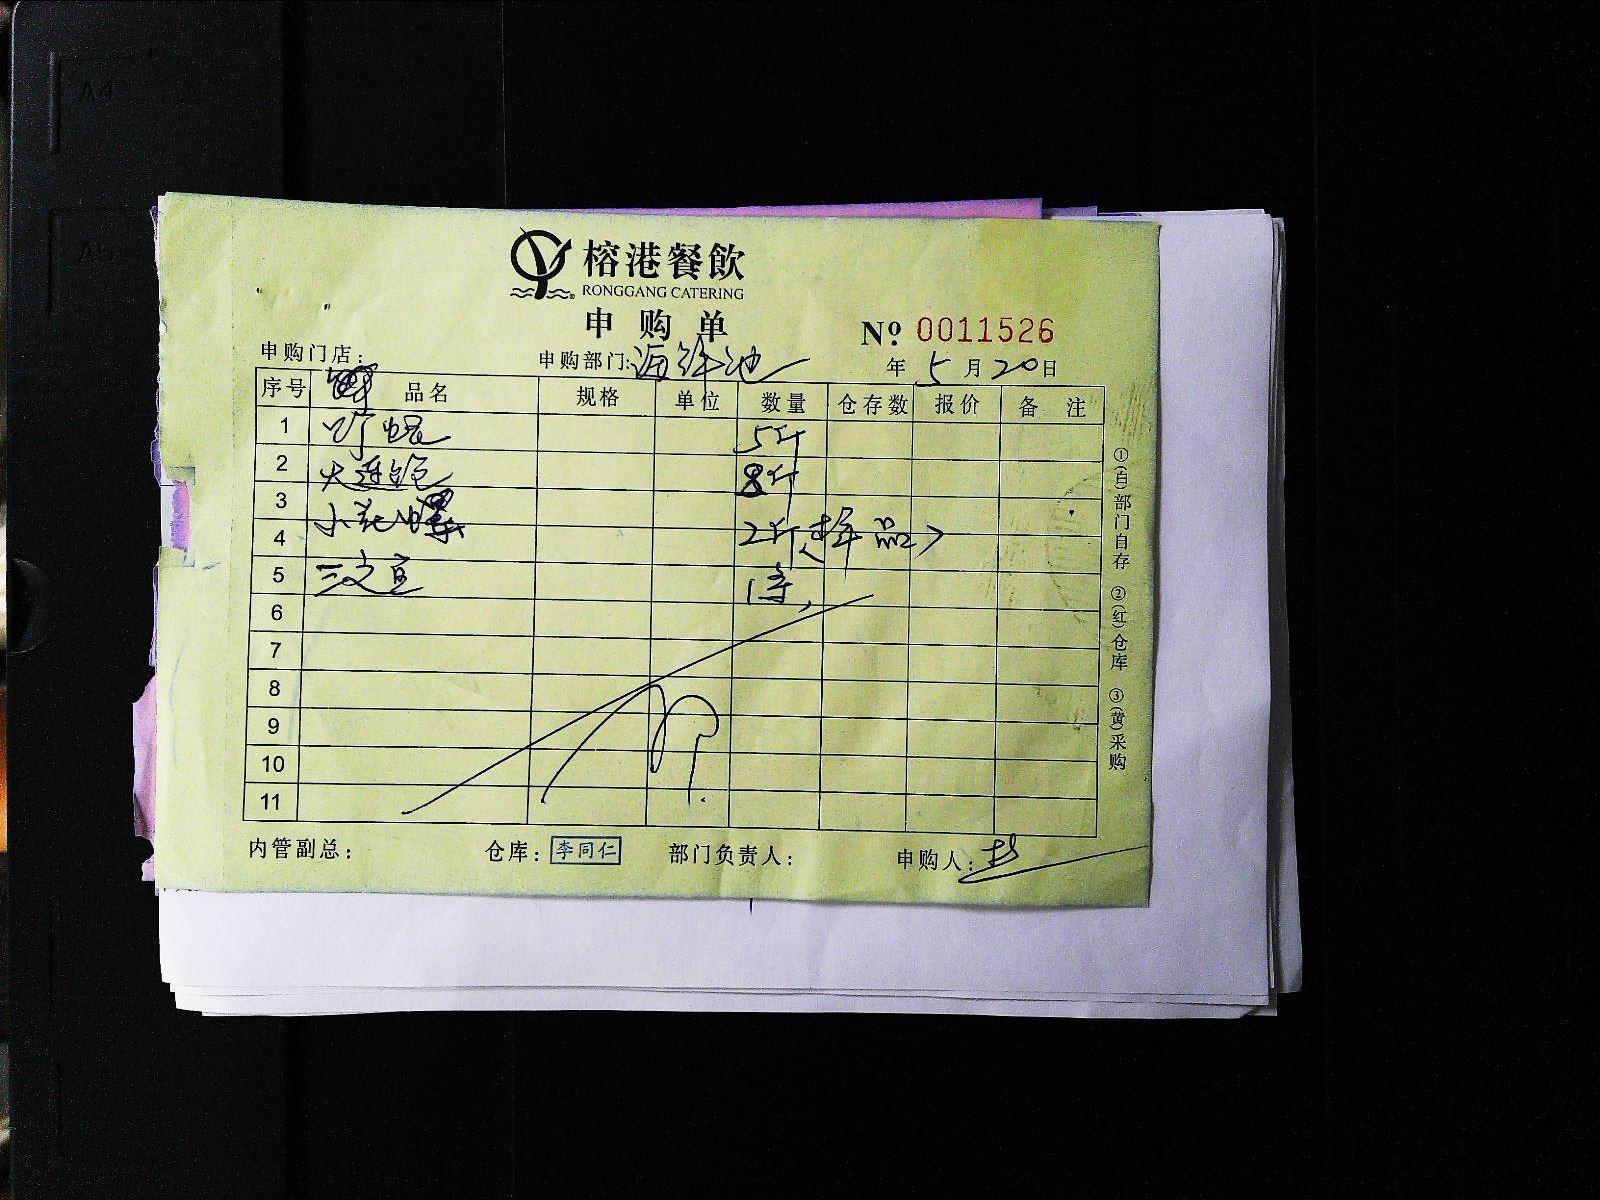 A4
A5
榕港餐飲
RONGGANG CATERING
申购单
№ 0011526
申购门店：
申购部门：海鲜池
年 5 月 20 日
序号 品名 规格 单位 数量 仓存数 报价 备 注
1 5斤
2 大连鲍 8斤
3 小花螺
4 2斤（样品）
5 三文鱼 1条
6
7
8
9
10
11
内管副总：
仓库：李同仁
部门负责人：
申购人：
①（白）部门自存 ②（红）仓库 ③（黄）采购